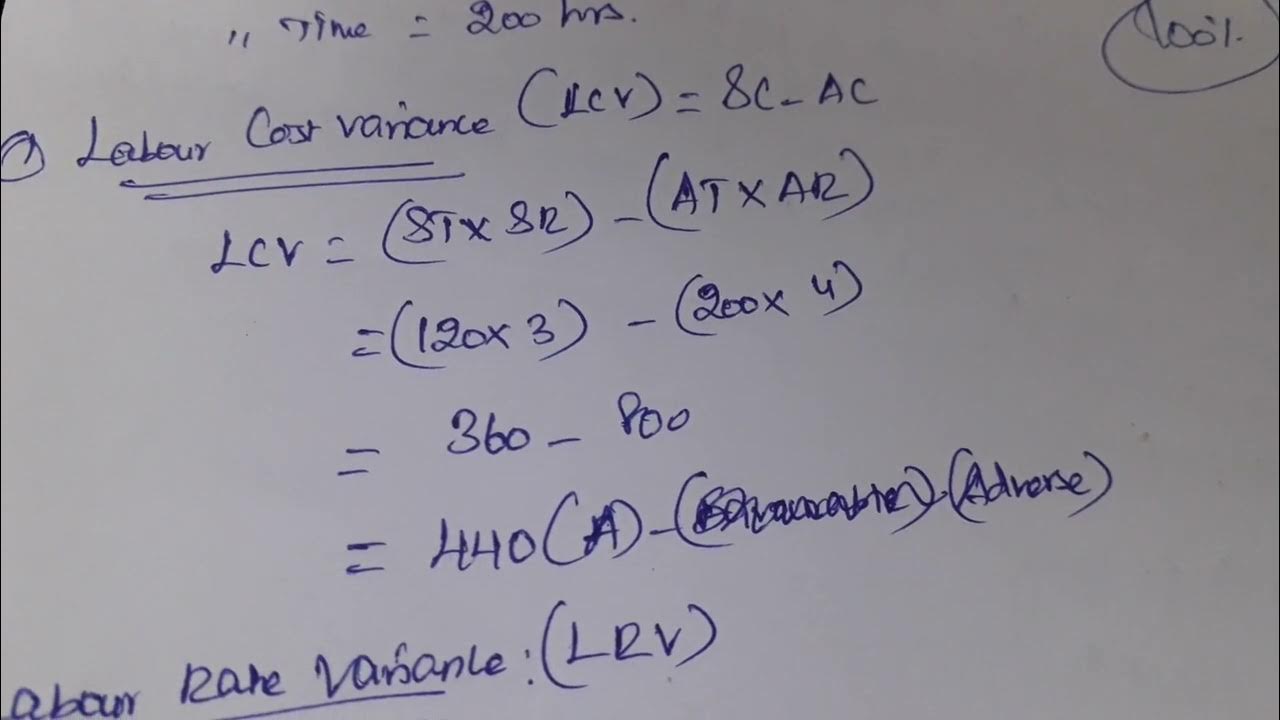 ,, Time = 200 hrs.
100%.
Labour Cost variance (LCV) = SC - AC
LCV = (ST x SR) - (AT x AR)
= (120 x 3) - (200 x 4)
= 360 - 800
= 440 (A) - (Adverse)
abour Rate Variance : (LRV)